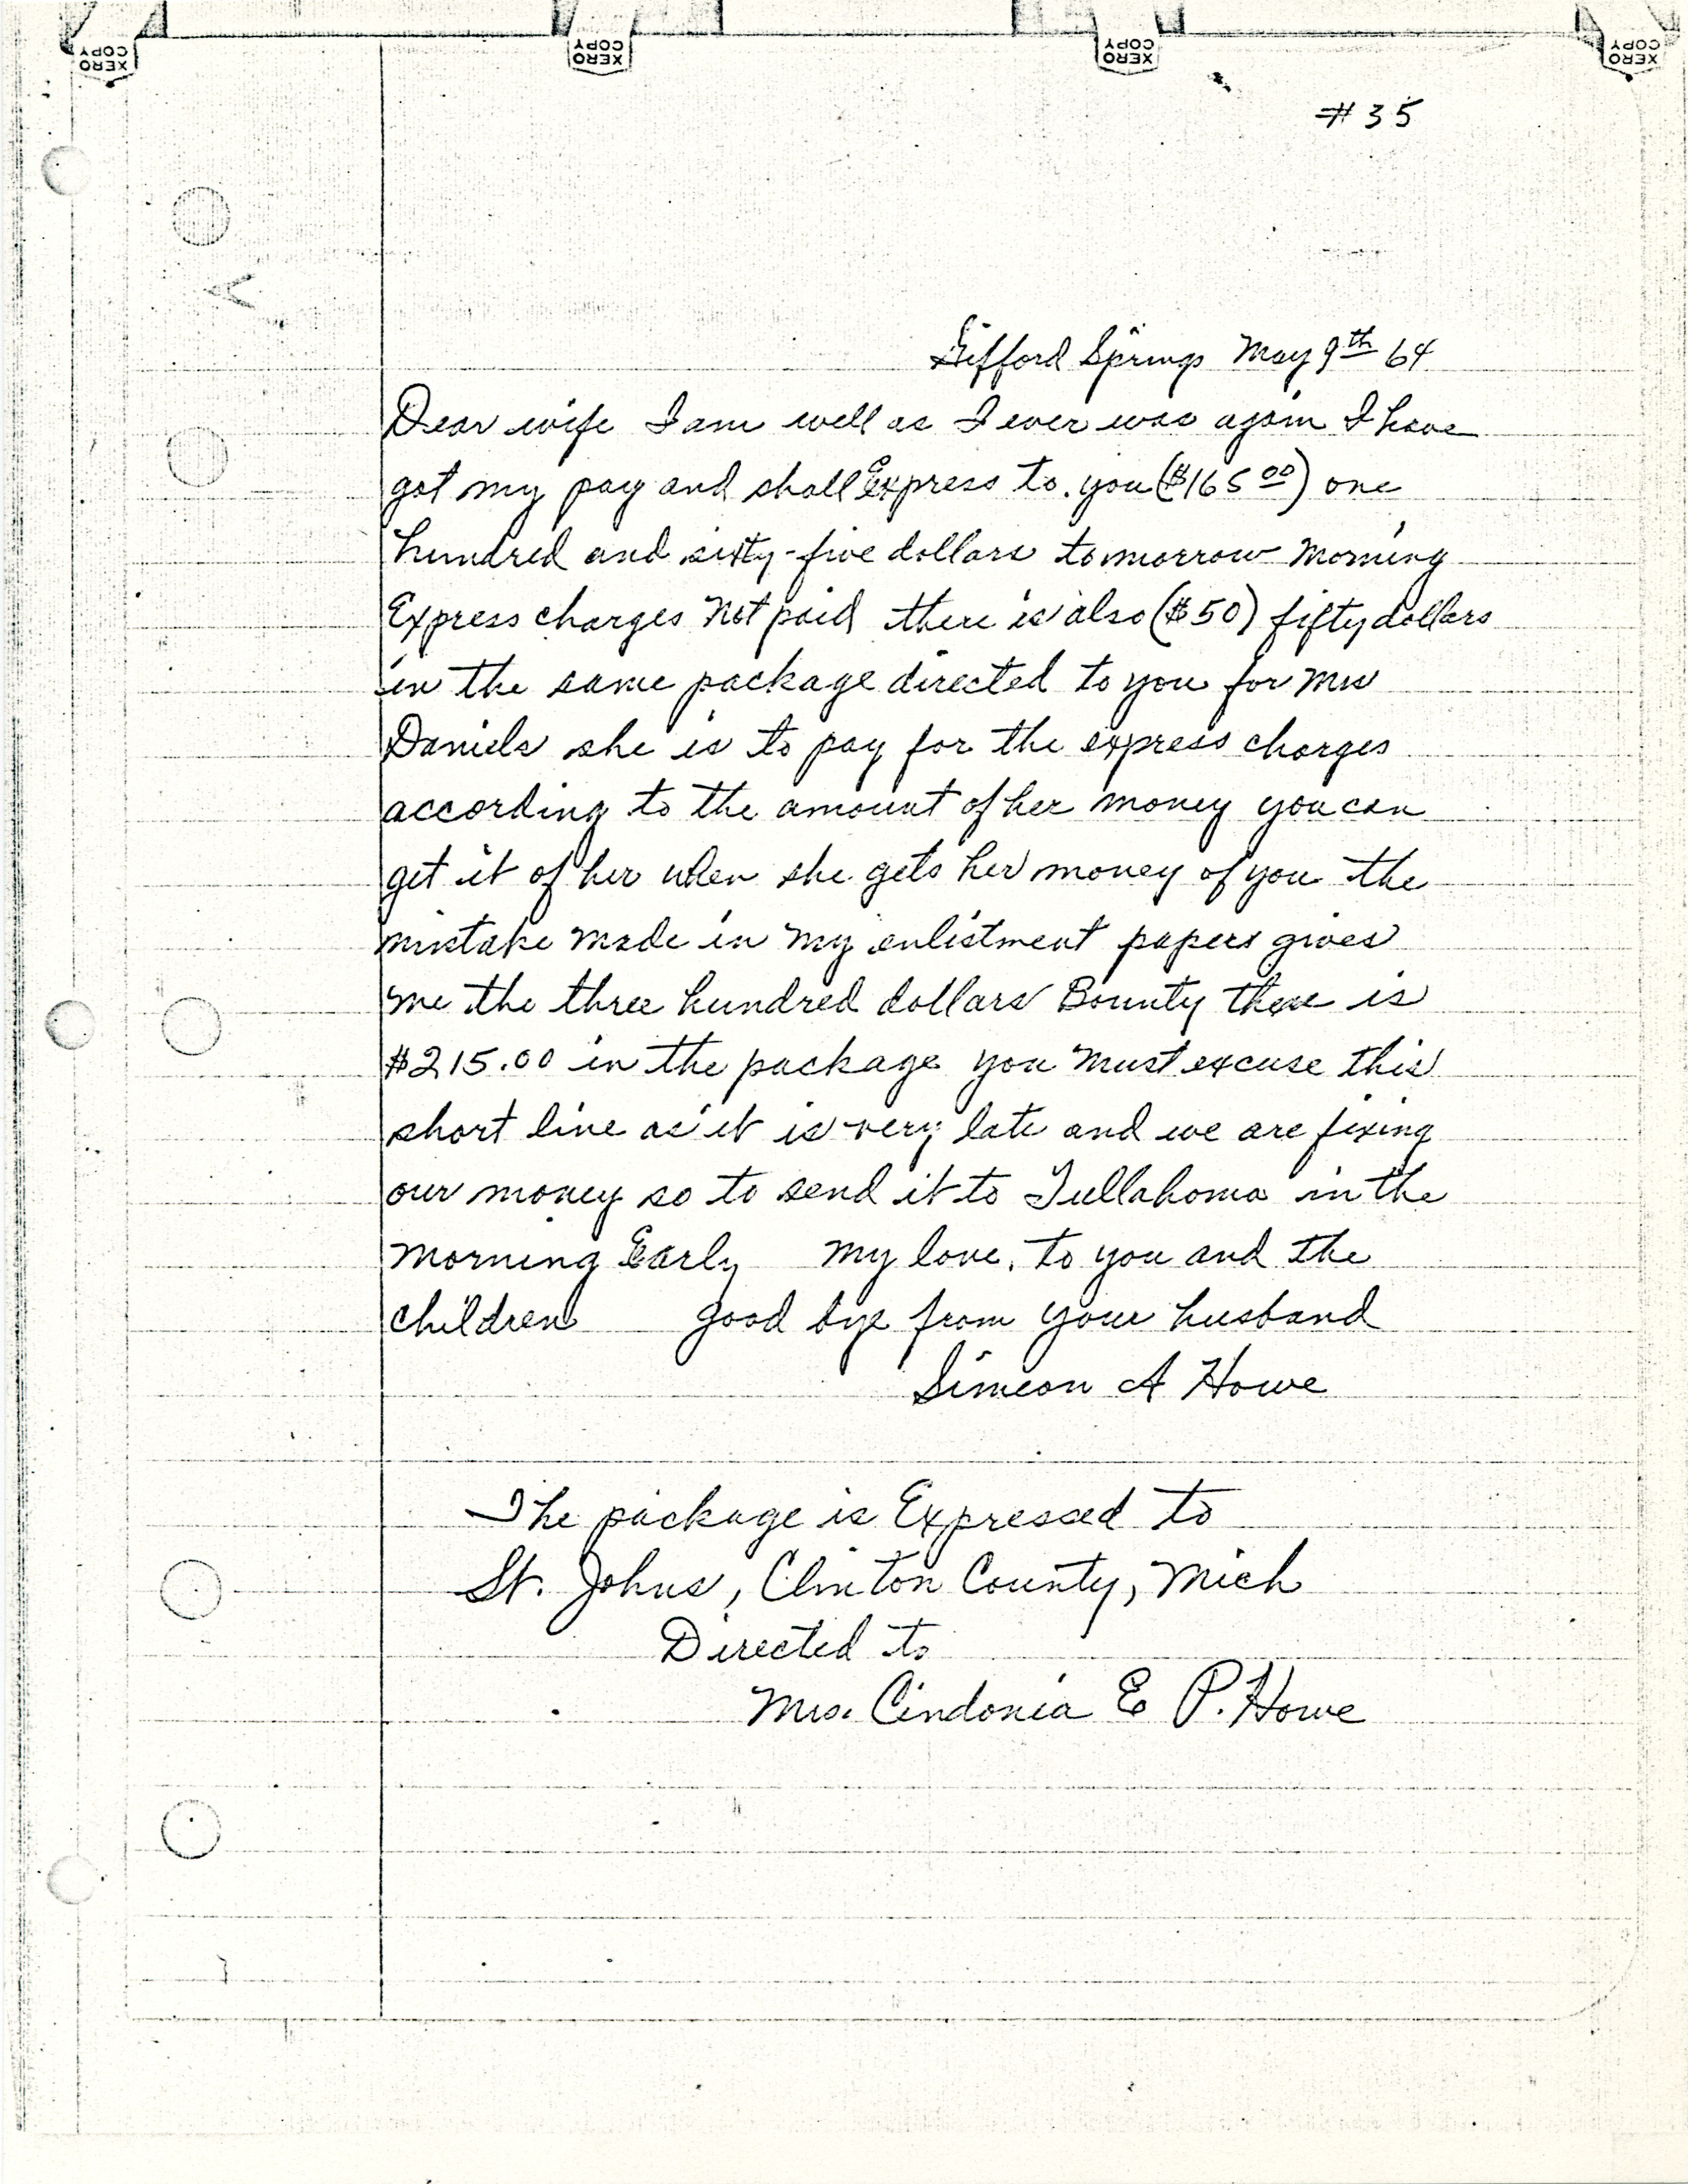 XERO COPY XERO COPY XERO COPY XERO COPY
# 35
Gifford Springs May 9th 64
Dear wife I am well as I ever was again I have
got my pay and shall Express to you ($165 00) one
hundred and sixty-five dollars tomorrow morning
Express charges Not paid there is also ($50) fifty dollars
in the same package directed to you for Mrs
Daniels she is to pay for the express charges
according to the amount of her money you can
get it of her when she gets her money of you the
mistake made in my enlistment papers gives
me the three hundred dollars Bounty there is
$215.00 in the package you must excuse this
short line as it is very late and we are fixing
our money so to send it to Tullahoma in the
morning Early my love. to you and the
children good bye from your husband
Simeon A Howe
The package is Expressed to
St. Johns, Clinton County, Mich
Directed to
Mrs. Cindonia E P. Howe